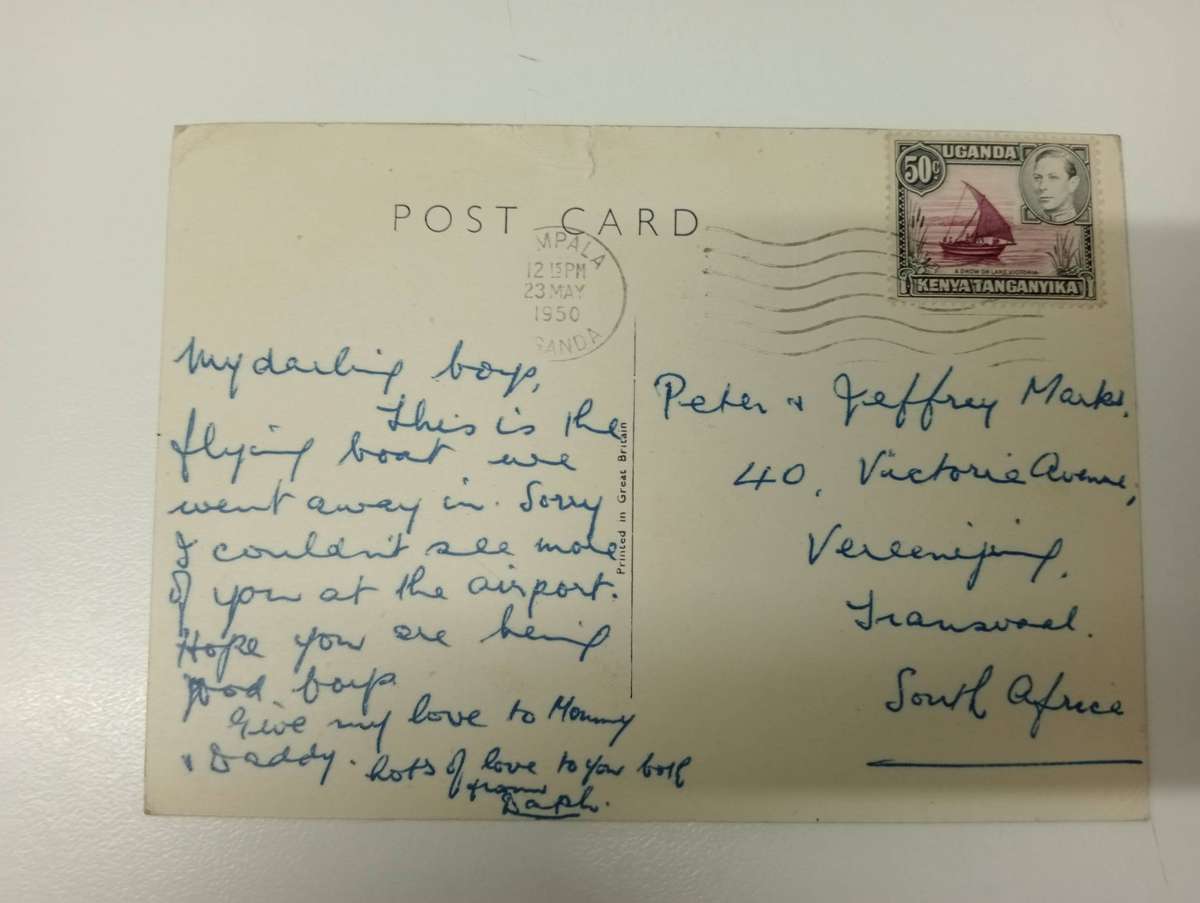 POST CARD
MPALA
12 15 PM
23 MAY
1950
GANDA
50c
UGANDA
A DHOW ON LAKE VICTORIA
KENYA TANGANYIKA
My darling boys,
This is the
flying boat we
went away in. Sorry
I couldn't see more
of you at the airport.
Hope you are being
good boys.
Give my love to Mommy
& Daddy. Lots of love to you both
from
Daph.
Printed in Great Britain
Peter & Jeffrey Marks,
40, Victoria Avenue,
Vereeniging,
Transvaal.
South Africa